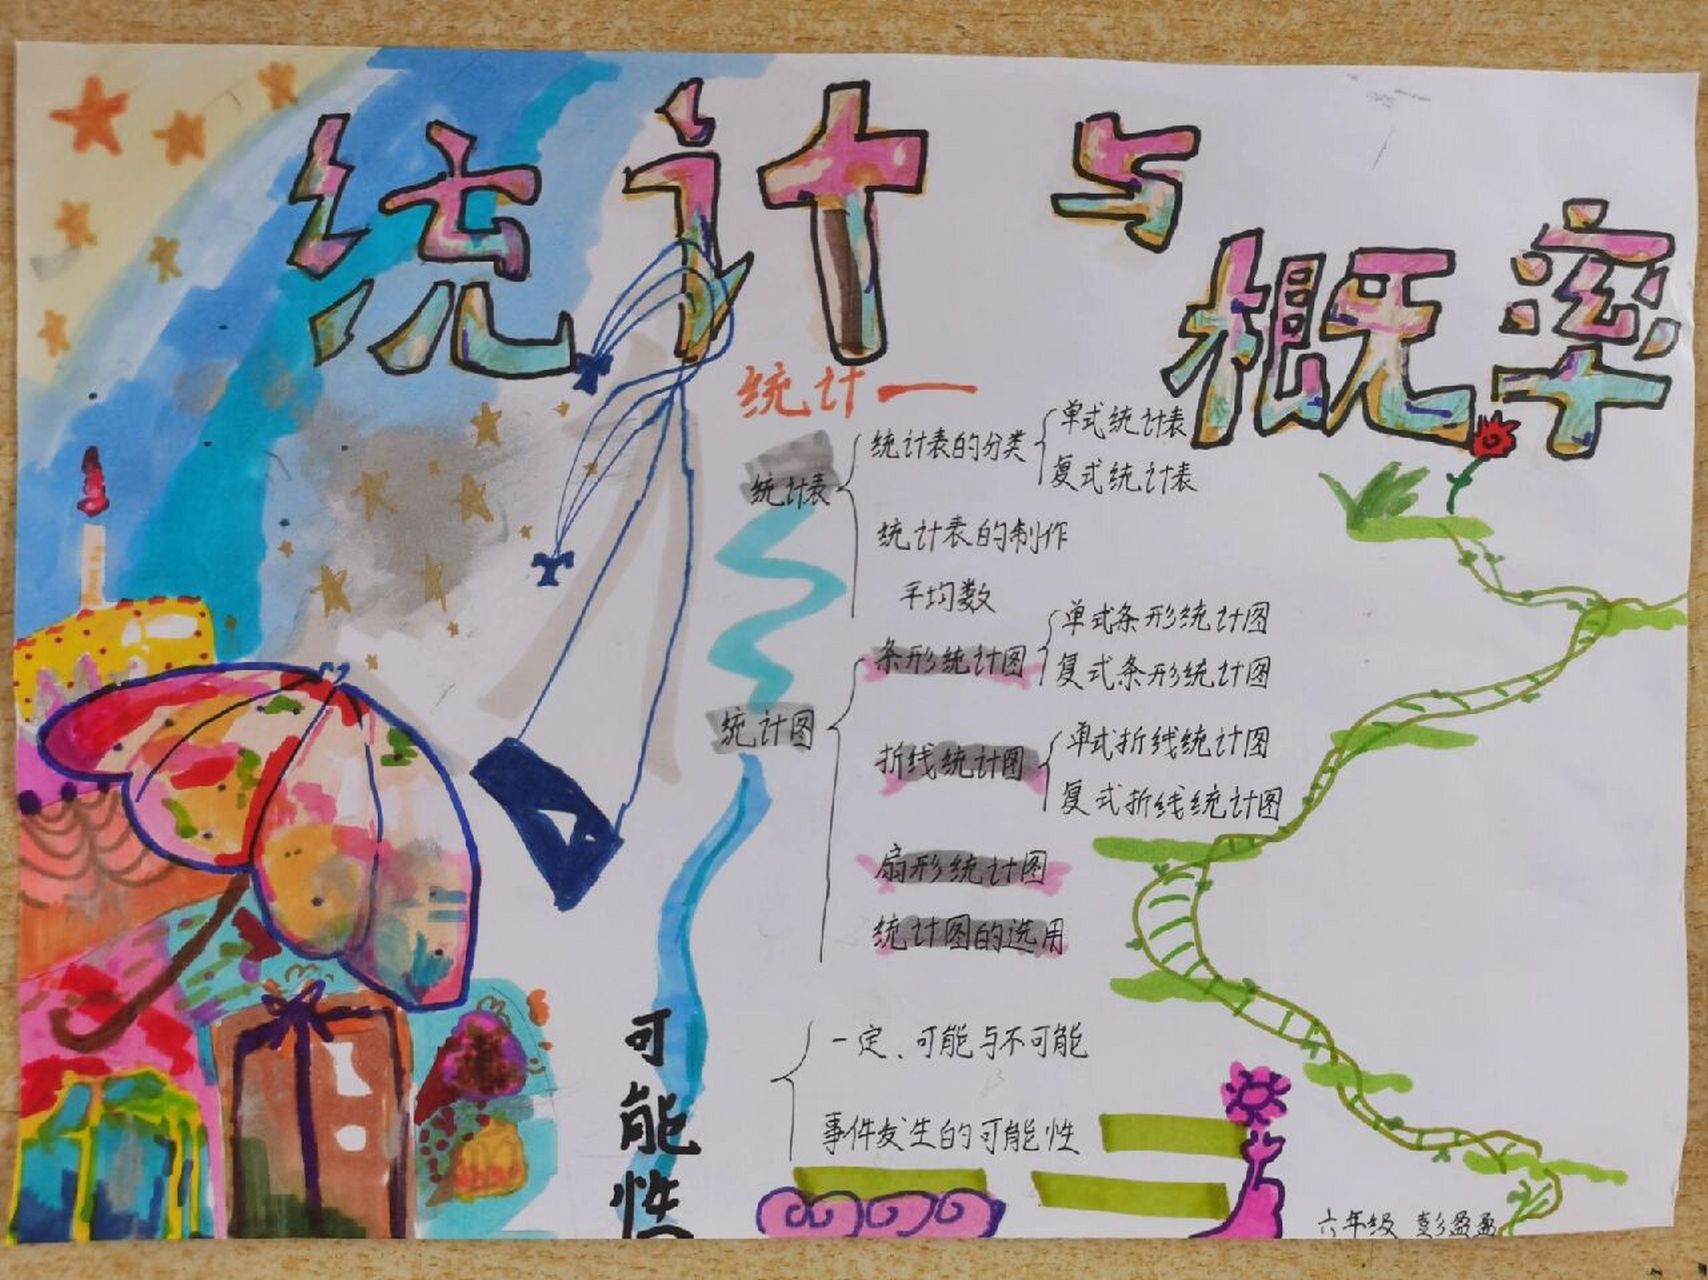 统计与概率
统计一
统计表
统计表的分类
单式统计表
复式统计表
统计表的制作
平均数
统计图
条形统计图
单式条形统计图
复式条形统计图
折线统计图
单式折线统计图
复式折线统计图
扇形统计图
统计图的选用
可能性
一定、可能与不可能
事件发生的可能性
六年级 彭盈盈